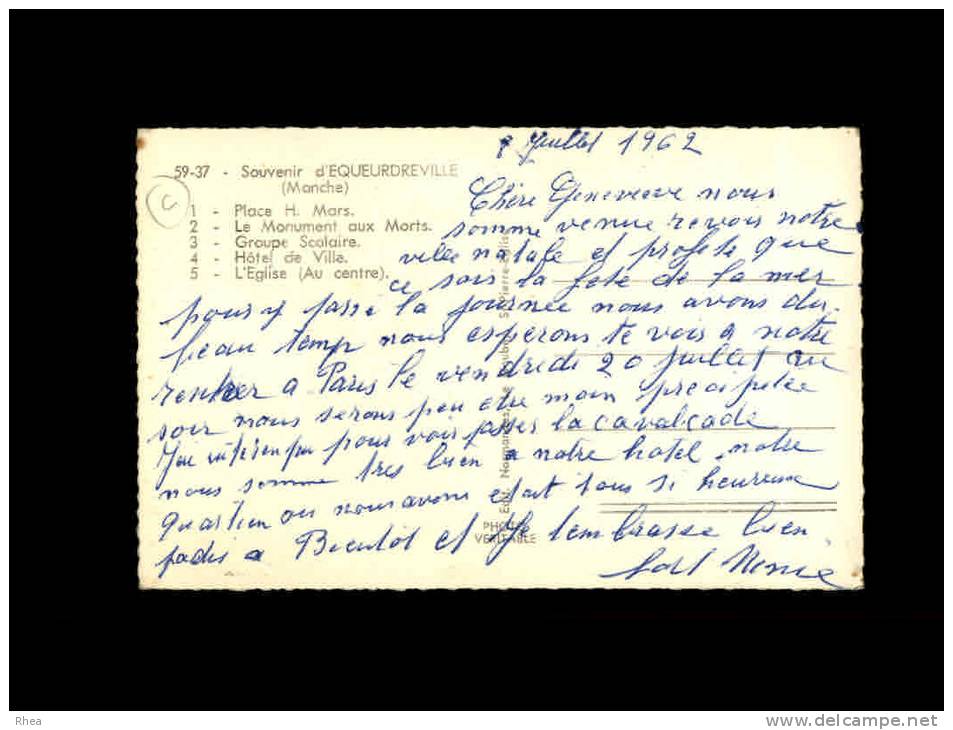 59-37 - Souvenir d'EQUEURDREVILLE
(Manche)
1 - Place H. Mars.
2 - Le Monument aux Morts.
3 - Groupe Scolaire.
4 - Hôtel de Ville.
5 - L'Eglise (Au centre).
C
Juillet 1962
Chère Genevieve nous
somme venue revois notre
ville natale et profite que
ce sois la fete de la mer
pour y passé la journée nous avons du
beau temp nous esperons te vois a notre
rentrer a Paris le vendredi 20 juillet au
soir nous serons peu etre moin precipitée
pour vois passer la cavalcade
nous somme tres bien a notre hotel. notre
quartien ou nous avons etait tous si heureuse
jadis a Bientot et je t'embrasse bien
fort
PHOTO
VERITABLE
Rhea
www.delcampe.net